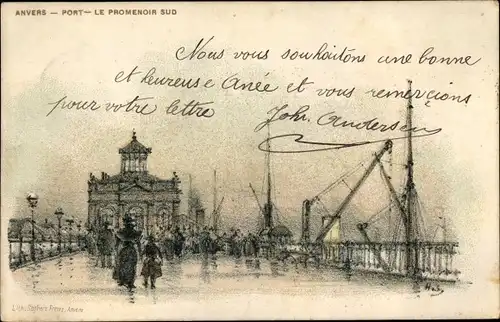 ANVERS — PORT — LE PROMENOIR SUD
Nous vous souhaitons une bonne
et heureuse Anée et vous remerçions
pour votre lettre
Joh. Andersen
Lith. Frères, Anvers